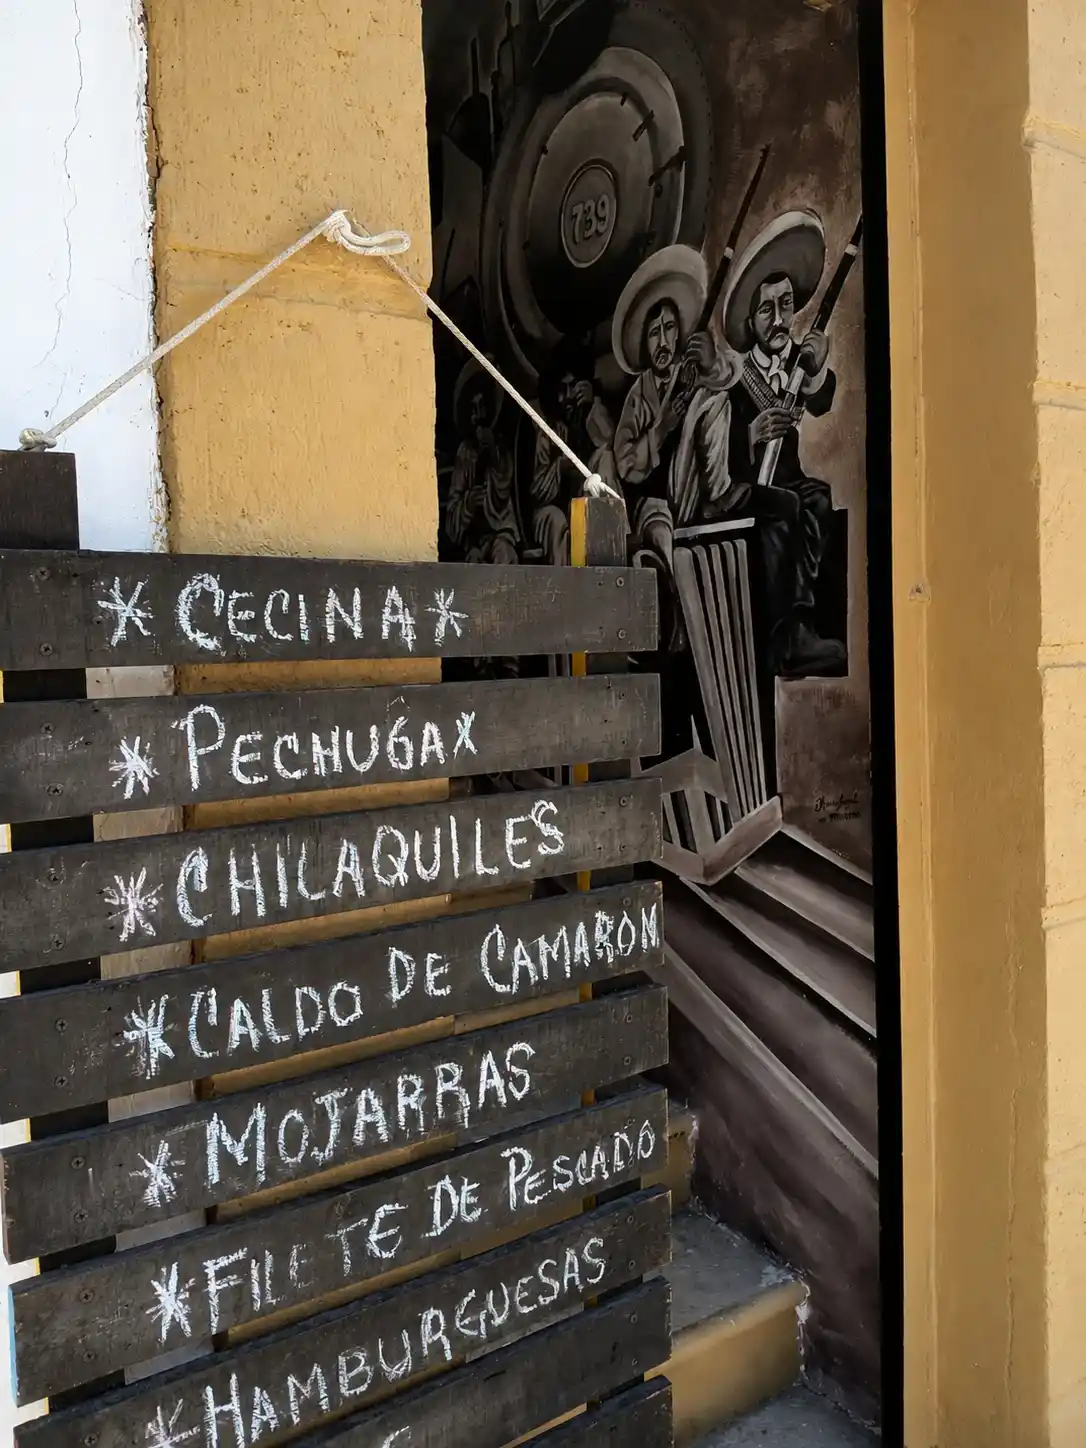 739
* CECINA *
* PECHUGA *
* CHILAQUILES
* CALDO DE CAMARON
* MOJARRAS
* FILETE DE PESCADO
* HAMBURGUESAS